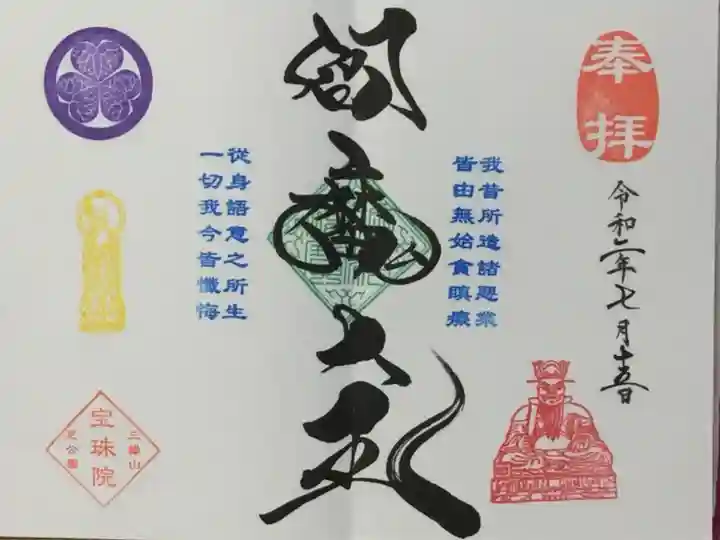 奉拝
令和二年七月十五日
我昔所造諸悪業
皆由無始貪瞋癡
閻魔大王
從身語意之所生
一切我今皆懺悔
三緣山
宝珠院
芝公園